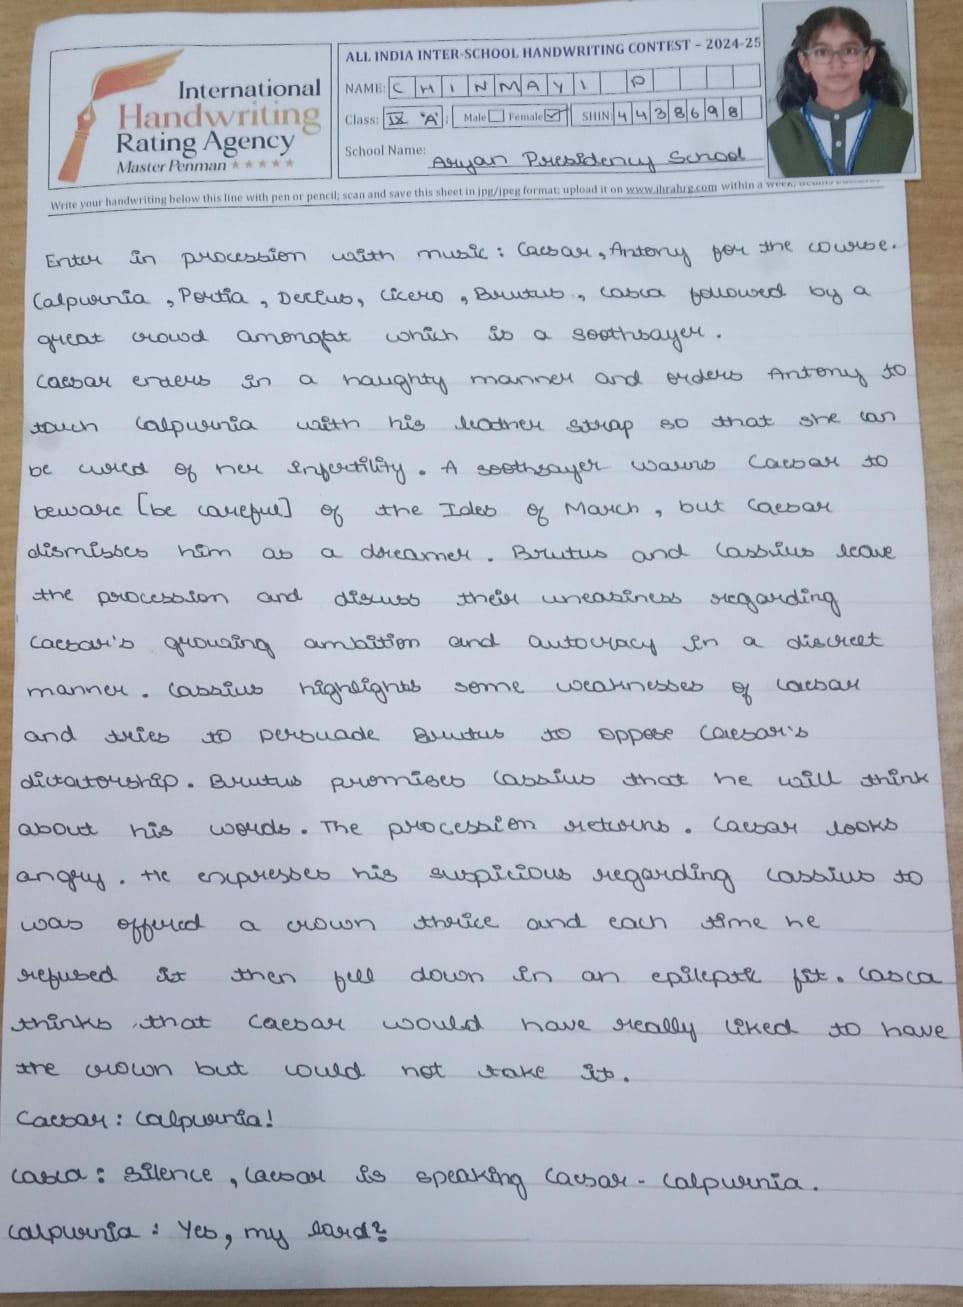 International
Handwriting
Rating Agency
Master Penman ★★★★★
ALL INDIA INTER-SCHOOL HANDWRITING CONTEST – 2024-25
NAME: CHINMAYI P
Class: IX 'A' Male Female ✓ SHIN: 4438698
School Name: Aryan Presidency School
Write your handwriting below this line with pen or pencil; scan and save this sheet in jpg/jpeg format; upload it on www.ihrahrg.com within a week,
Enter in procession with music : Caesar, Antony for the course.
Calpurnia, Portia, Decius, Cicero, Brutus, Casca followed by a
great crowd amongst which is a soothsayer.
Caesar enters in a haughty manner and orders Antony to
touch Calpurnia with his leather strap so that she can
be cured of her infertility. A soothsayer warns Caesar to
beware [be careful] of the Ides of March, but Caesar
dismisses him as a dreamer. Brutus and Cassius leave
the procession and discuss their uneasiness regarding
Caesar's growing ambition and autocracy in a discreet
manner. Cassius highlights some weaknesses of Caesar
and tries to persuade Brutus to oppose Caesar's
dictatorship. Brutus promises Cassius that he will think
about his words. The procession returns. Caesar looks
angry. He expresses his suspicious regarding Cassius to
was offered a crown thrice and each time he
refused it then fell down in an epileptic fit. Casca
thinks that Caesar would have really liked to have
the crown but could not take it.
Caesar : Calpurnia!
Casca : Silence, Caesar is speaking Caesar - Calpurnia.
Calpurnia : Yes, my lard?